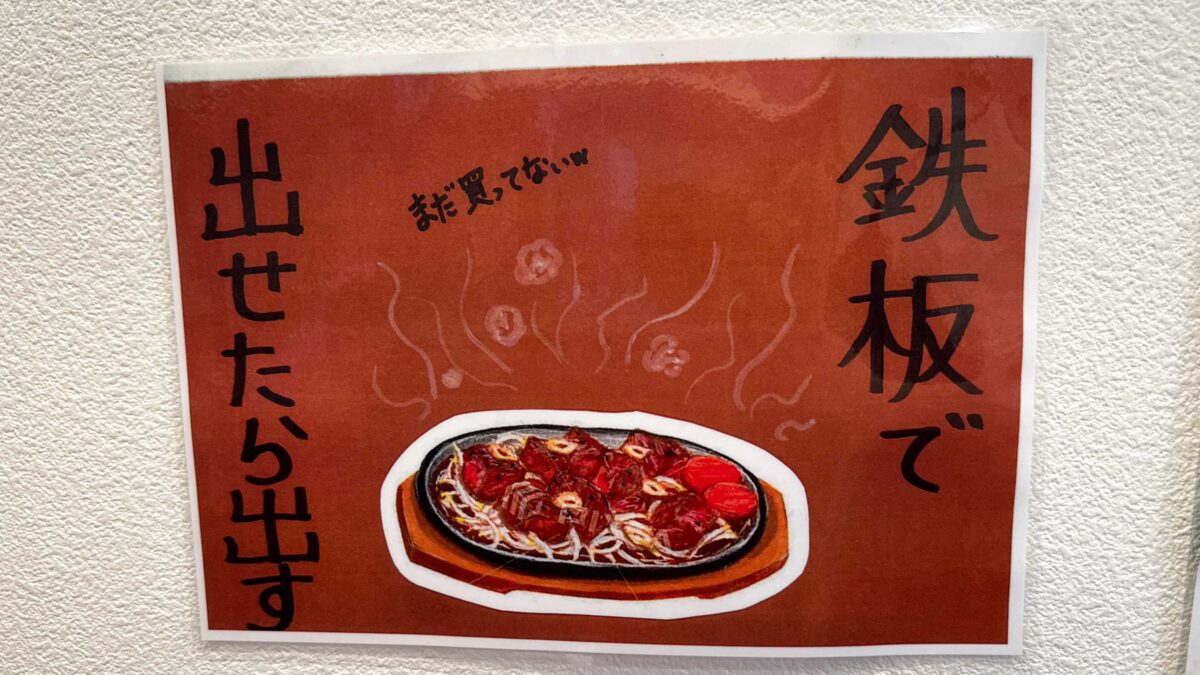 鉄板で
まだ買ってないw
出せたら出す